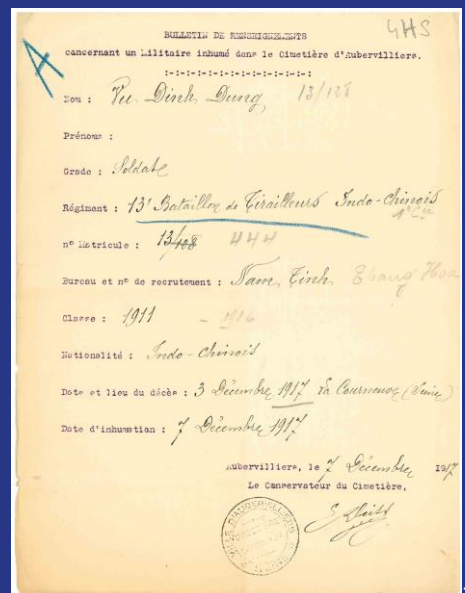 4HS
A
BULLETIN DE RENSEIGNEMENTS
concernant un Militaire inhumé dans le Cimetière d'Aubervilliers.
:-:-:-:-:-:-:-:-:-:-:-:-:
Nom : Vu Dinh Dung 13/128
Prénoms :
Grade : Soldat
Régiment : 13e Bataillon de Tirailleurs Indo-Chinois
1e Cie
n° Matricule : 13/128 444
Bureau et n° de recrutement : Nam Tinh Thang Hoa
Classe : 1911 - 1916
Nationalité : Indo-chinois
Date et lieu du décès : 3 Décembre 1917 La Courneuve (Seine)
Date d'inhumation : 7 Décembre 1917
Aubervilliers, le 7 Décembre 1917
Le Conservateur du Cimetière,
VILLE D'AUBERVILLIERS